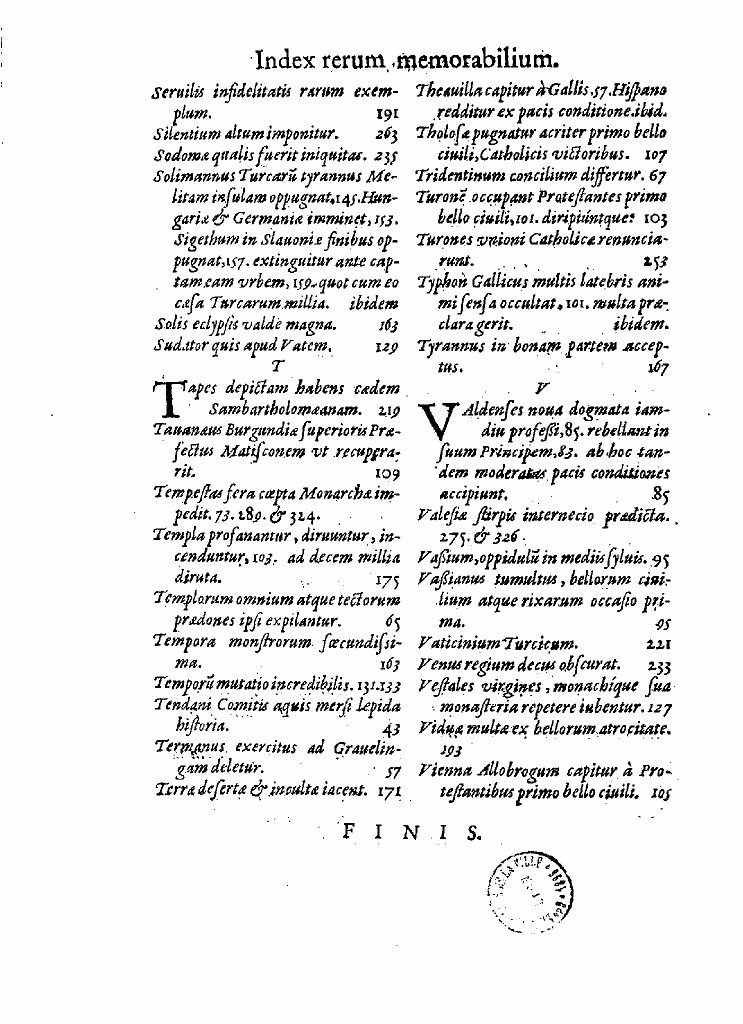 Index rerum memorabilium.
Seruilis infidelitatis rarum exem-
plum. 191
Silentium altum imponitur. 263
Sodomæ qualis fuerit iniquitas. 235
Solimannus Turcarū tyrannus Me-
litam insulam oppugnat, 145. Hun-
gariæ & Germaniæ imminet, 153.
Sigethum in Slauoniæ finibus op-
pugnat, 157. extinguitur ante cap-
tam eam vrbem, 159. quot cum eo
cæsa Turcarum millia. ibidem
Solis eclypsis valde magna. 163
Sudator quis apud Vatem. 129
T
Tapes depictam habens cædem
Sambartholomæanam. 219
Tauanæus Burgundiæ superioris Præ-
fectus Matisconem vt recupera-
rit. 109
Tempestas fera cœpta Monarchæ im-
pedit. 73. 289. & 324.
Templa profanantur, diruuntur, in-
cenduntur, 103. ad decem millia
diruta. 175
Templorum omnium atque tectorum
prædones ipsi expilantur. 65
Tempora monstrorum fœcundissi-
ma. 163
Temporū mutatio incredibilis. 131.133
Tendani Comitis aquis mersi lepida
historia. 43
Termanus exercitus ad Grauelin-
gam deletur. 57
Terra deserta & inculta iacent. 171
Theauilla capitur à Gallis, 57. Hispano
redditur ex pacis conditione. ibid.
Tholosæ pugnatur acriter primo bello
ciuili, Catholicis victoribus. 107
Tridentinum concilium differtur. 67
Turonē occupant Protestantes primo
bello ciuili, 101. diripiuntque: 103
Turones vnioni Catholicæ renuncia-
runt. 253
Typhon Gallicus multis latebris ani-
mi sensa occultat. 101. multa præ-
clara gerit. ibidem.
Tyrannus in bonam partem accep-
tus. 167
V
VAldenses noua dogmata iam-
diu professi, 85. rebellant in
suum Principem, 83. ab hoc tan-
dem moderatas pacis conditiones
accipiunt. 85
Valesiæ stirpis internecio prædicta.
275. & 326.
Vassium, oppidulū in mediis syluis. 95
Vassianus tumultus, bellorum ciui-
lium atque rixarum occasio pri-
ma. 95
Vaticinium Turcicum. 221
Venus regium decus obscurat. 233
Vestales virgines, monachique sua
monasteria repetere iubentur. 127
Viduæ multæ ex bellorum atrocitate.
193
Vienna Allobrogum capitur à Pro-
testantibus primo bello ciuili. 105
FINIS.
DE LA VILLE